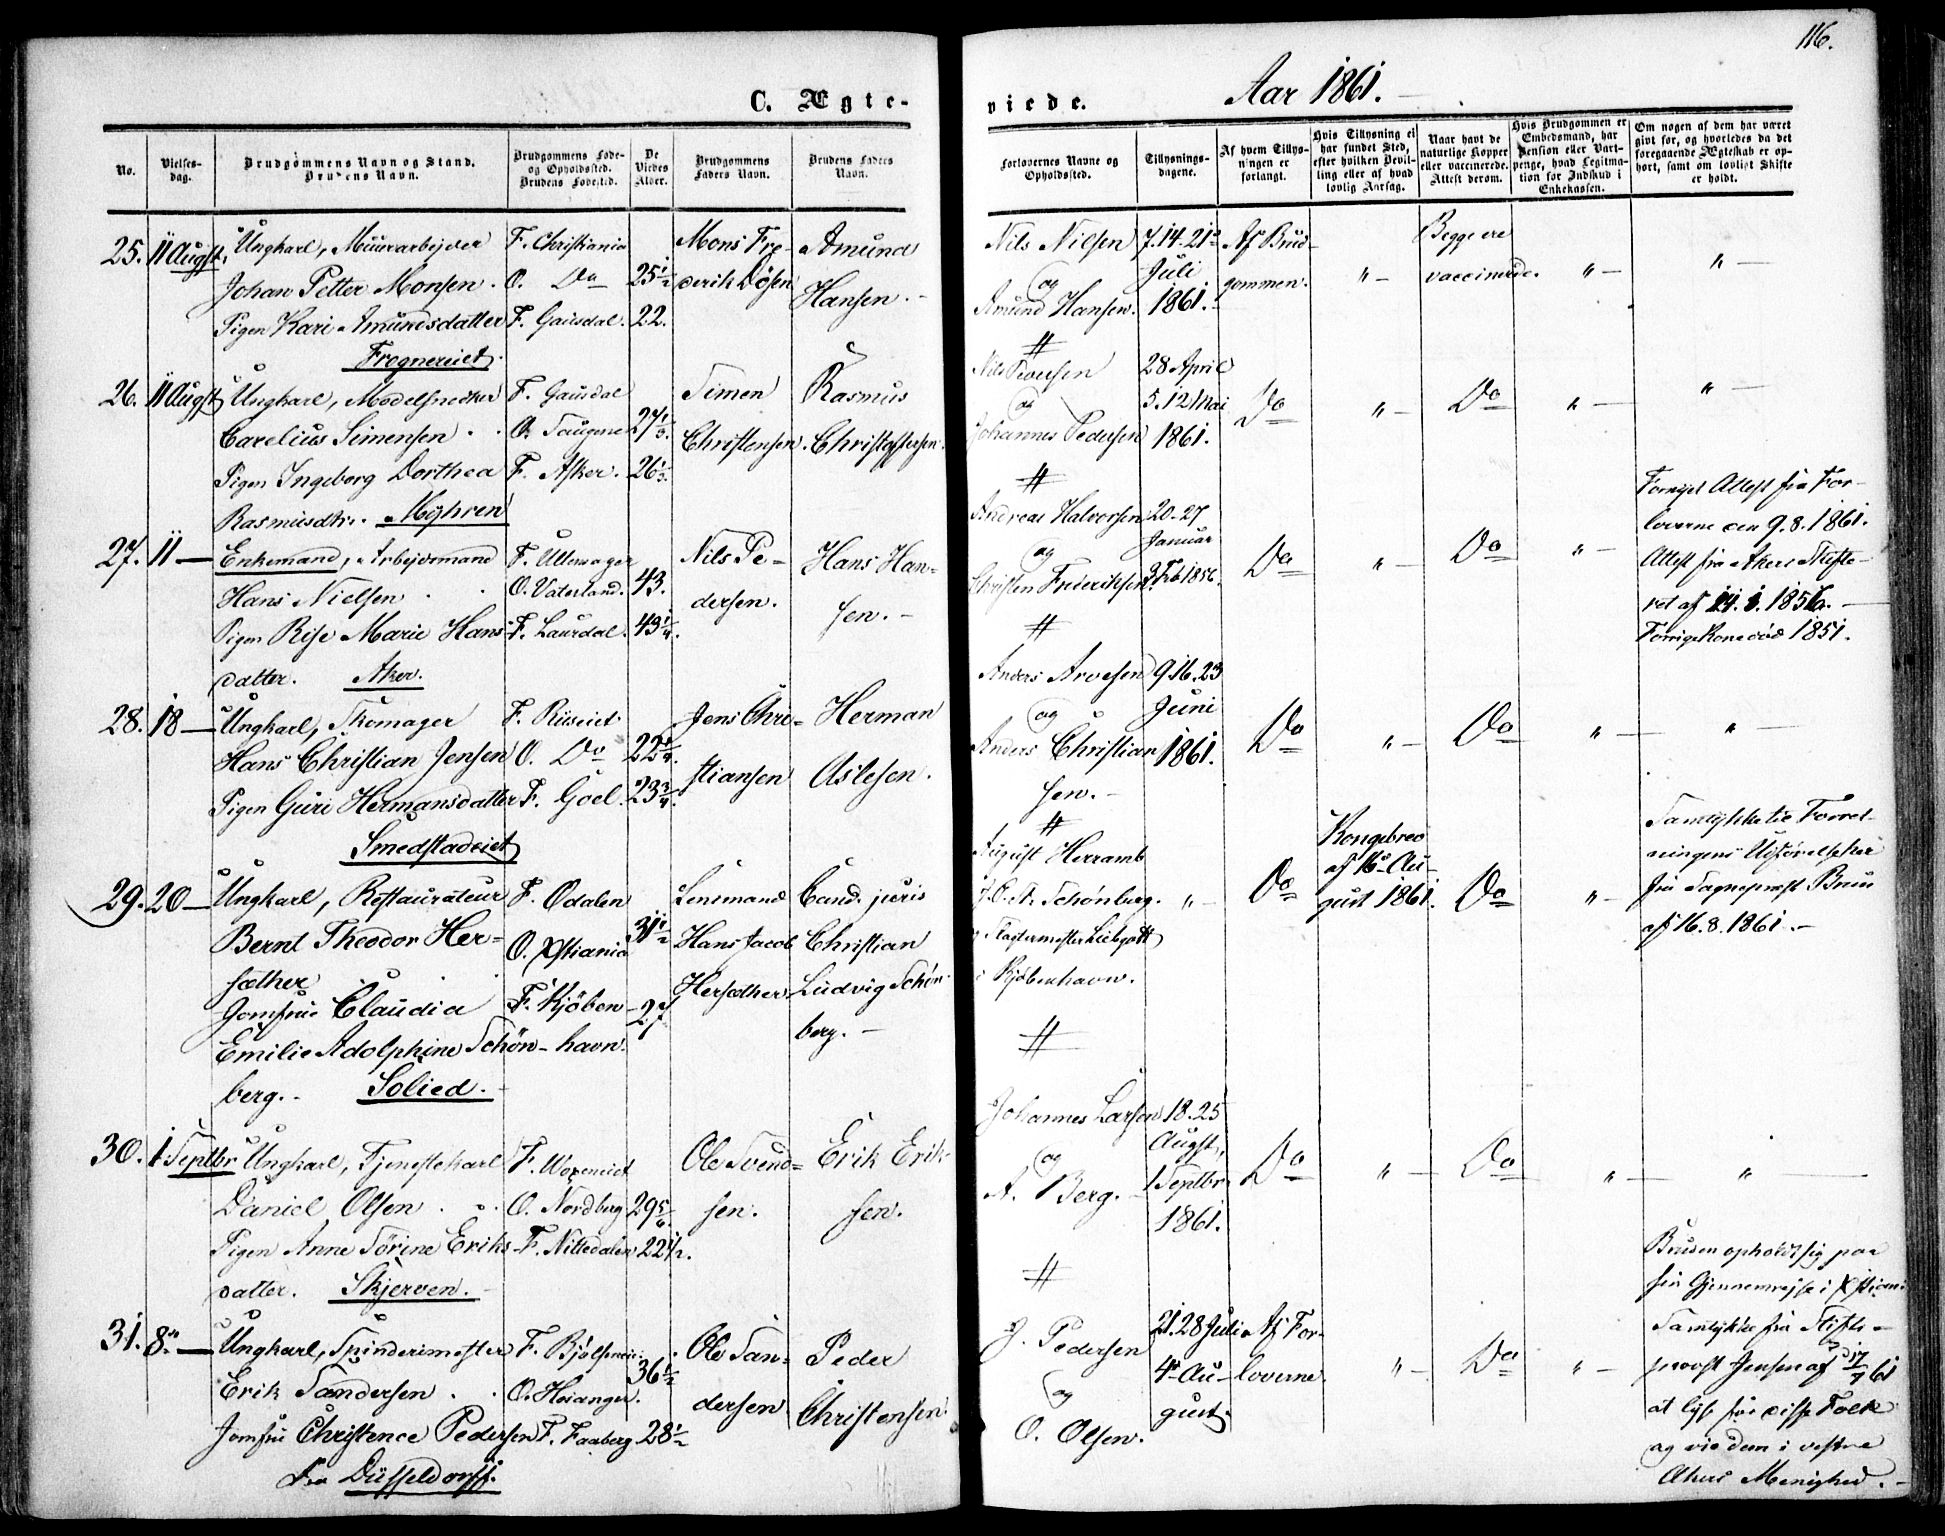 116.
C. Ægte-
viede.
Aar 1861.
No.
Vielses-
dag.
Brudgommens Navn og Stand.
Brudens Navn.
Brudgommens Føde-
og Opholdssted.
Brudens Fødested.
De
Viedes
Alder.
Brudgommens
Faders Navn.
Brudens Faders
Navn.
Forlovernes Navne og
Opholdssted.
Tillysnings-
dagene.
Af hvem Tillys-
ningen er
forlangt.
Hvis Tillysning ei
har fundet Sted,
efter hvilken Bevil-
ling eller af hvad
lovlig Aarsag.
Naar havt de
naturlige Kopper
eller vaccinerede.
Attest derom.
Hvis Brudgommen er
Embedsmand, har
Pension eller Vart-
penge, hvad Legitima-
tion for Indskud i
Enkekassen.
Om nogen af dem har været
gift før, og hvorledes da det
foregaaende Ægteskab er op-
hørt, samt om lovligt Skifte
er holdt.
25. 11 Augst. Ungkarl, Muurarbejder
Johan Petter Monsen.
Pigen Kari Amundsdatter
Frogнereiet.
F. Christiania
O. Do
F. Gausdal.
25 1/2
22.
Mons Fre-
derik Døsen
Amund
Hansen.
Nils Nilsen
og
Amund Hansen.
7. 14. 21de
Juli
1861.
Af Brud-
gommen.
" -
Begge ere
vaccinerede.
" -
" -
26. 11 Augst Ungkarl, Modelsnedker
Carelius Simensen
Pigen Ingeborg Dorthea
Rasmusdtr. Myhren
F. Gausdal
O. Taugene
F. Asker.
27 1/3
26 1/3
Simen
Christensen.
Rasmus
Christophersen.
Johannes Pedersen
og
28 April
5. 12 Mai
1861.
Do
" -
Do
" -
" -
27. 11 - Enkemand, Arbejdsmand
Hans Nielsen
Pigen Rise Marie Hans-
datter. Aker.
F. Ullensager
O. Vaterland.
F. Laurdal.
43.
43 1/4.
Nils Pe-
dersen.
Hans Han-
sen. -
Andreas Halvorsen
og
Christen Frederiksen.
20. 27
Januar
3 Feb 1856.
Do
" -
Do
" -
Fornyet Attest fra For-
loverne den 9. 8. 1861.
Attest fra Akers Skifte-
ret af 24. 1. 1856. -
Forrige Kone død 1851.
28. 18 - Ungkarl, Skomager
Hans Christian Jensen
Pigen Guri Hermansdatter
Smedstadeiet
F. Riiseiet
O. Do
F. Goel.
22 3/4.
23 3/4.
Jens Chri-
stiansen
Herman
Aslesen.
Anders Arvesen
og
Anders Christian
sen. -
9. 16. 23
Juni
1861.
Do
" -
Do
" -
" -
29. 20 - Ungkarl, Restaurateur
Bernt Theodor Her-
sæther
Jomfrue Claudia
Emilie Adolphine Schøn-
berg. - Solied. -
F. Odalen
O. Xstiania
F. Kjøben-
havn.
31 1/2
27
Lensmand
Hans Jacob
Hersæther
Cand. juris
Christian
Ludvig Schøn-
berg. -
August Herramb
J. C. A. Schønberg.
Slagtermester Liebgott
i Kjøbenhavn.
" -
Do
Kongebrev
af 16de Au-
gust 1861.
Do
" -
Samtykke til Forret-
ningens Udførelse her
fra Sognepræst Bruun
af 16. 8. 1861. -
30. 1. Septbr Ungkarl, Tjenestekarl
Daniel Olsen
Pigen Anne Sørine Eriks-
datter. Skjerven. -
F. Woxeneiet
O. Nordberg
F. Nittedalen
29 5/6
22 1/2.
Ole Svend-
sen.
Erik Erik-
sen.
Johannes Larsen
og
A. Berg. -
18. 25
Augst,
1 Septbr
1861.
Do
" -
Do
" -
" -
31. 8de - Ungkarl, Spinderimester
Erik Sandersen
Jomfru Christence Pedersen
fra Düsseldorff.
F. Bjølseneie
O. Hoianger.
F. Faaberg
36 1/2
28 1/2
Ole San-
dersen.
Peder
Christensen.
J. Pedersen
og
O. Olsen.
21. 28 Juli
4de Au-
gust.
Af For-
loverne.
" -
Do
" -
Bruden opholdt sig paa
sin Gjennemrejse i Xstiania
Samtykke fra Stifts-
provst Jensen af 17/7 61
at lyse for disse Folk
og vie dem i vestre
Akers Menighed. -